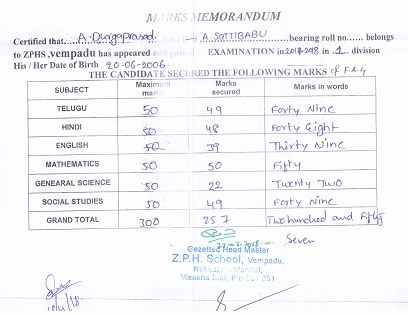 MARKS MEMORANDUM
Certified that A. Durgaprasad A. SOTTIBABU bearing roll no...... belongs
to ZPHS, vempadu has appeared and EXAMINATION in 2017-2018 in 1 division
His / Her Date of Birth 20-06-2006.
THE CANDIDATE SECURED THE FOLLOWING MARKS of FA-4
SUBJECT Maximum marks Marks secured Marks in words
TELUGU 50 49 Forty Nine
HINDI 50 48 Forty Eight
ENGLISH 50 39 Thirty Nine
MATHEMATICS 50 50 Fifty
GENEARAL SCIENCE 50 22 Twenty Two
SOCIAL STUDIES 50 49 Forty Nine
GRAND TOTAL 300 257 Two hundred and Fifty
Seven
Gezetted Head Master
Z.P.H. School, Vempadu,
Nakkapalli Mandal,
Visakha Dist,